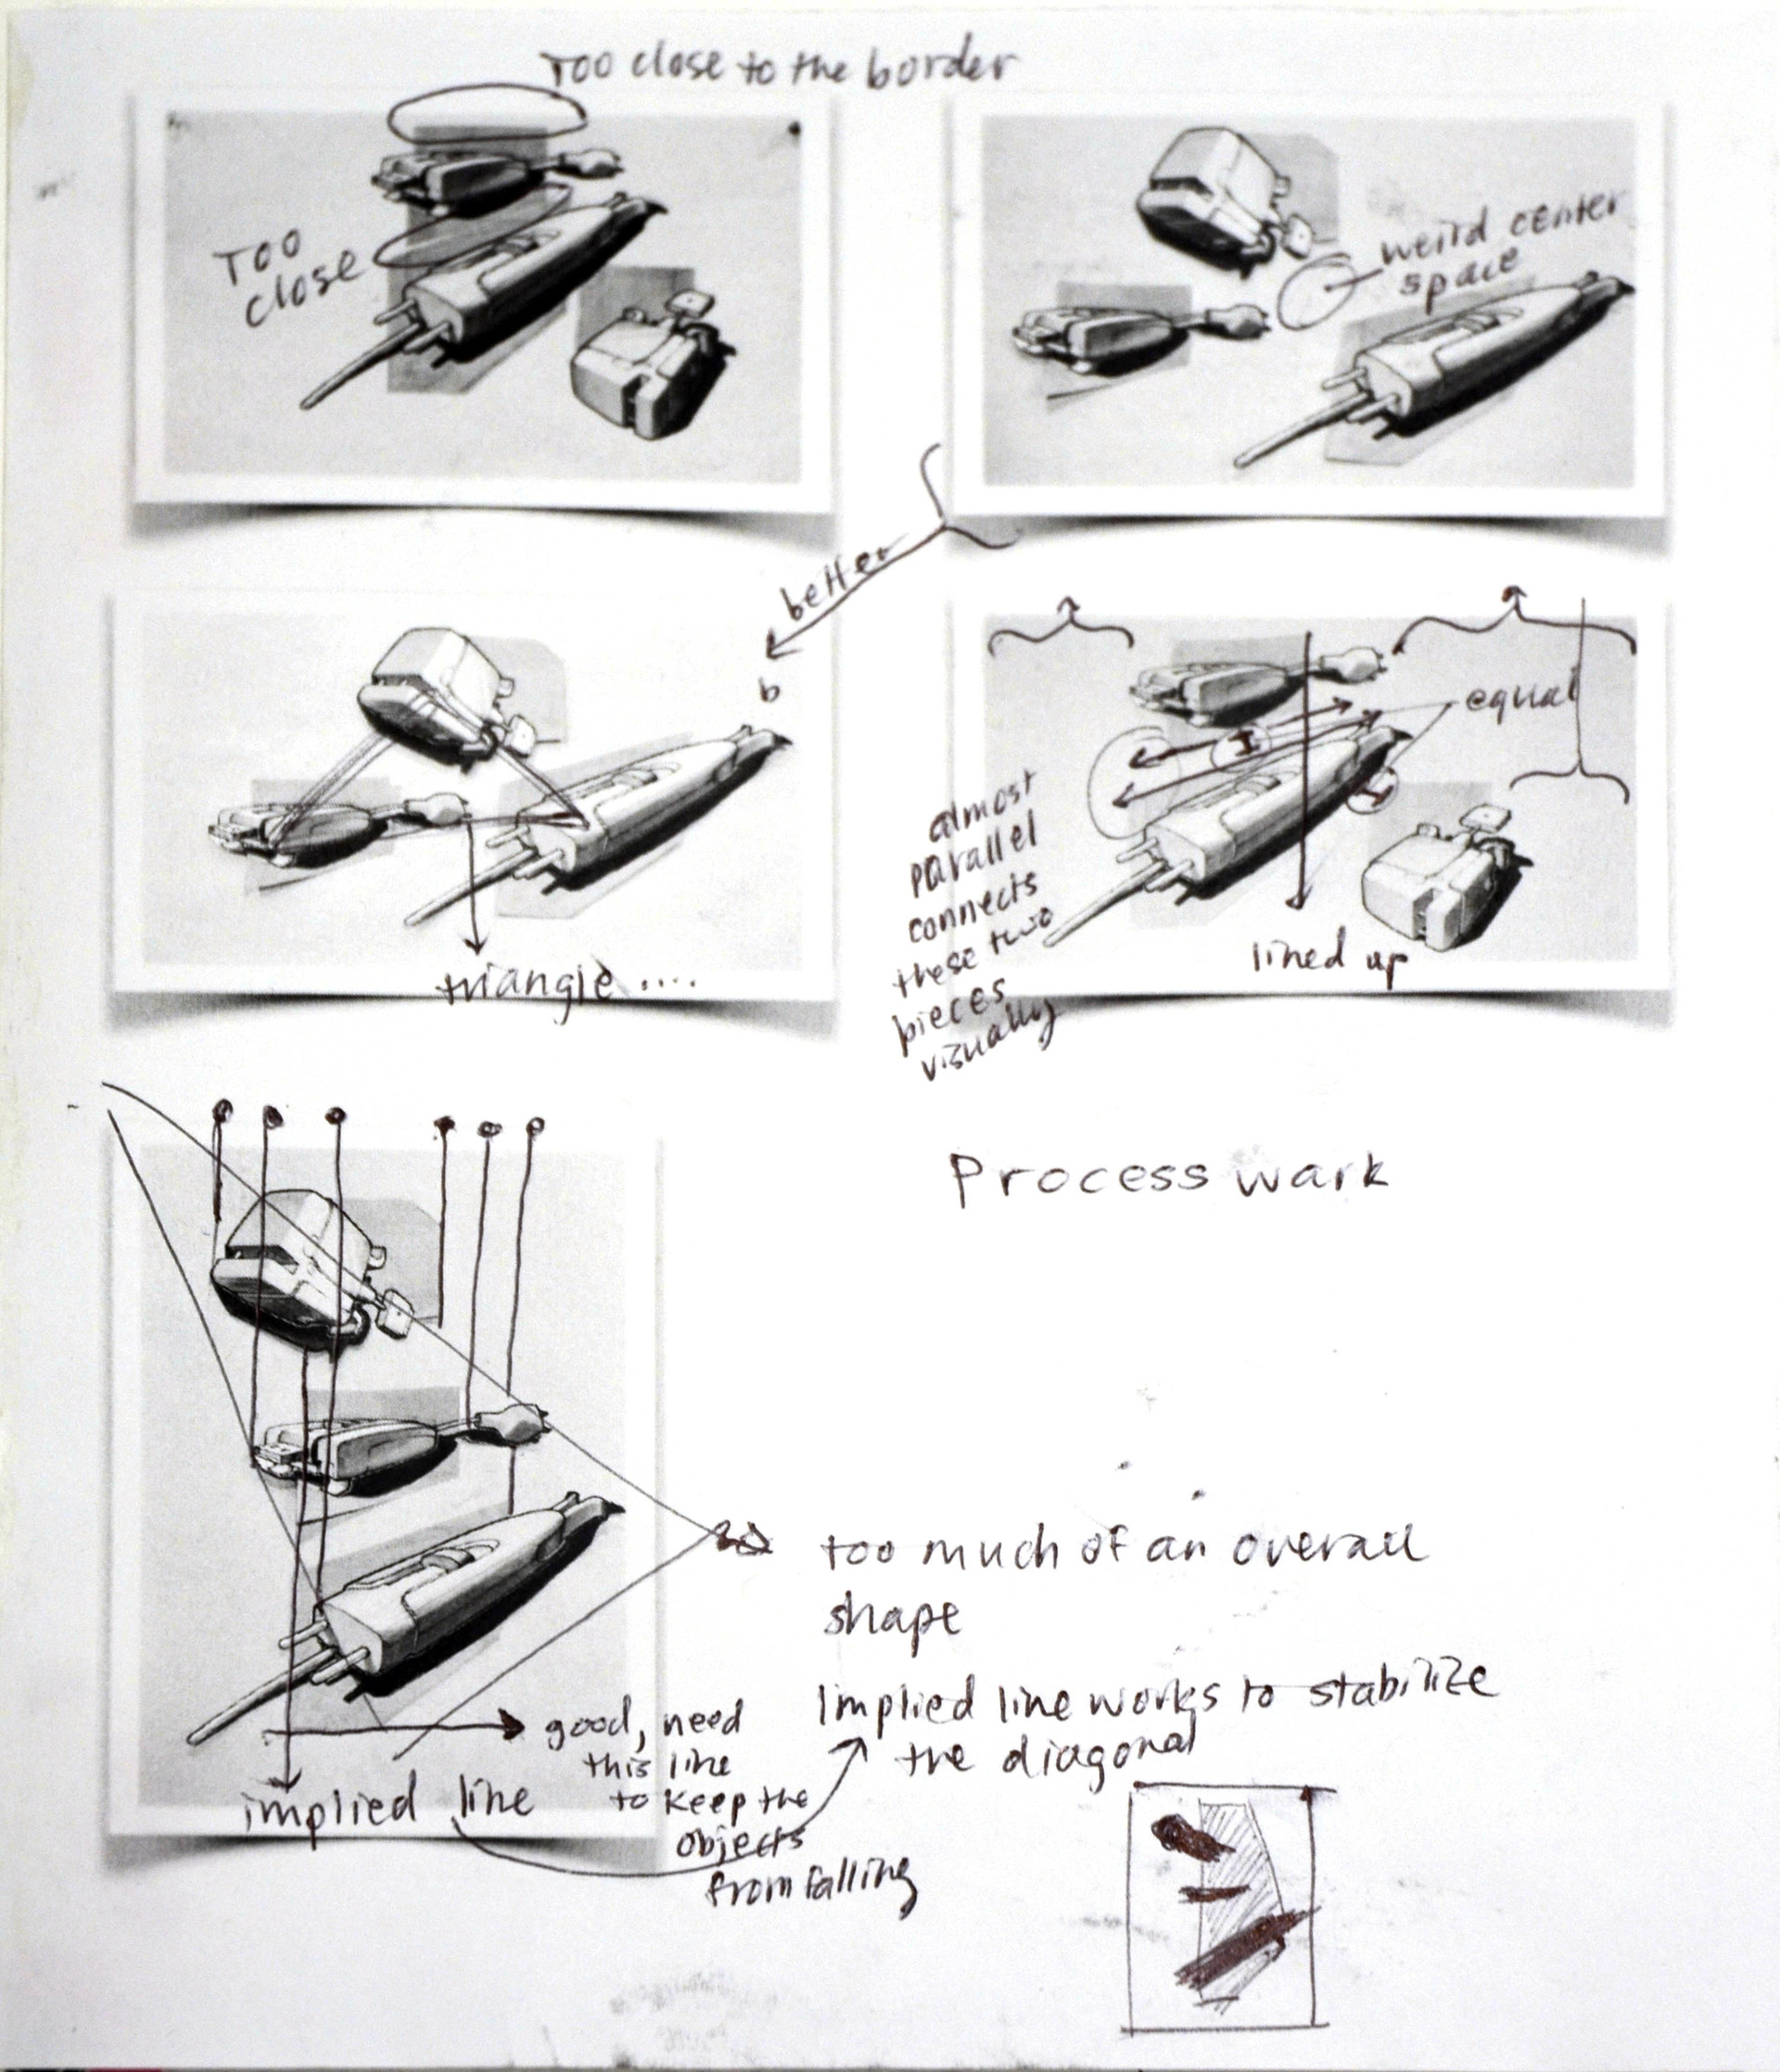 Too close to the border
Too
close
weird center
space
better
b
triangle ....
equal
almost
parallel
connects
these two
pieces
visually
lined up
Process wark
too much of an overall
shape
Implied line works to stabilize
the diagonal
good, need
this line
to keep the
objects
from falling
implied line